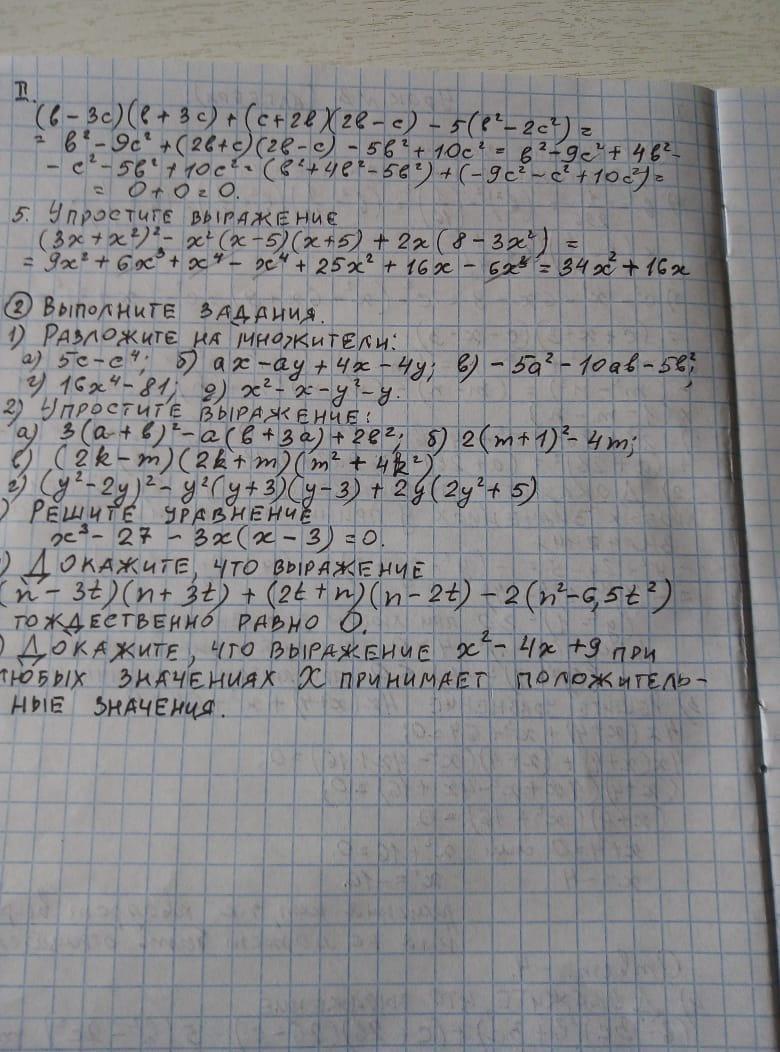 II.
(в - 3с)(в + 3с) + (с + 2в)(2в - с) - 5(в² - 2с²) =
= в² - 9с² + (2в + с)(2в - с) - 5в² + 10с² = в² - 9с² + 4в² -
- с² - 5в² + 10с² = (в² + 4в² - 5в²) + (-9с² - с² + 10с²) =
= 0 + 0 = 0.
5. Упростите выражение
(3x + x²)² - x²(x - 5)(x + 5) + 2x(8 - 3x²) =
= 9x² + 6x³ + x⁴ - x⁴ + 25x² + 16x - 6x³ = 34x² + 16x
② Выполните задания.
1) Разложите на множители:
а) 5с - с⁴; б) ax - ay + 4x - 4y; в) -5а² - 10ав - 5в²;
г) 16x⁴ - 81; д) x² - x - y² - y.
2) Упростите выражение:
а) 3(а + в)² - а(в + 3а) + 2в²; б) 2(m + 1)² - 4m;
в) (2k - m)(2k + m)(m² + 4k²)
г) (y² - 2y)² - y²(y + 3)(y - 3) + 2y(2y² + 5)
) Решите уравнение
x³ - 27 - 3x(x - 3) = 0.
) Докажите, что выражение
(n - 3t)(n + 3t) + (2t + n)(n - 2t) - 2(n² - 6,5t²)
тождественно равно 0.
) Докажите, что выражение x² - 4x + 9 при
любых значениях X принимает положитель-
ные значения.